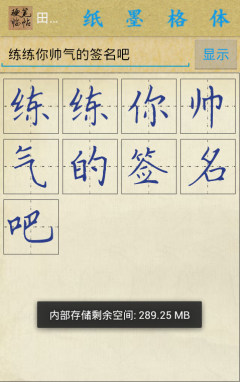 硬笔临帖 田... 纸 墨 格 体
练练你帅气的签名吧 显示
练 练 你 帅
气 的 签 名
吧
内部存储剩余空间: 289.25 MB